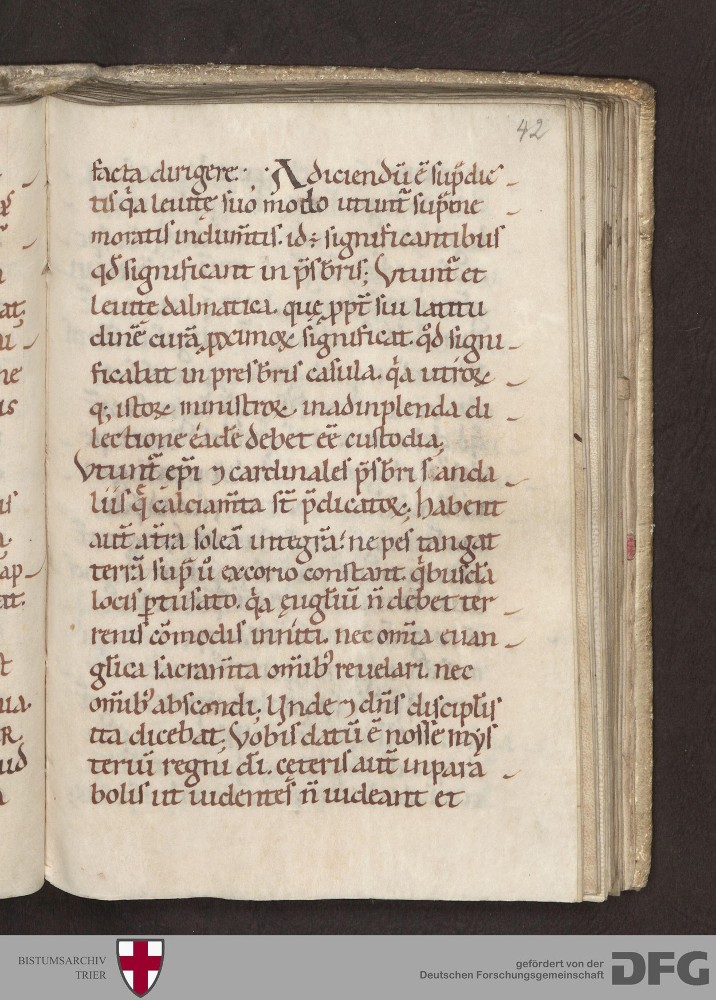 42
facta dirigere. Adiciendū ē sup̄dic
tis q̇a leuitę suo modo utunt᷑ sup̄me
moratis indum̄tis. id ÷ significantibus
qd̄ significant in p̄sb̄ris; Vtunt᷑ et
leuite dalmatica. quę ꝓpt᷑ sui latitu
dinē curā ꝓximoꝝ significat. qd̄ signi
ficabat in presb̄ris casula. q̇a utroꝝ
q; istoꝝ ministroꝝ in adinplenda di
lectione eadē debet eē custodia.
Vtunt᷑ ep̄i ⁊ cardinales p̄sb̄ri sanda
liis q̄ calciam̄ta st̄ p̄dicatoꝝ; habent
aut̄ at̄ra soleā integrā. ne pes tangat
terrā sup̄ ů ex corio constant. q̇busdā
locis ꝑtusato. q̇a ęuglīū n̄ debet ter
renis cōmodis inniti. nec om̄ia euan
gl̄ica sacram̄ta om̄ibꝰ reuelari. nec
om̄ibꝰ abscondi. Unde ⁊ dn̄s discipl̄is
ita dicebat; Vobis datū ē nosse mys
teriū regni dī. cęteris aut̄ in para
bolis ut uidentes n̄ uideant et
BISTUMSARCHIV
TRIER
gefördert von der
Deutschen Forschungsgemeinschaft
DFG